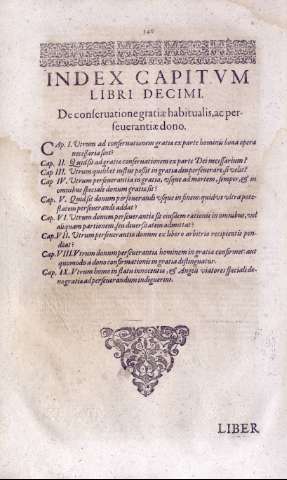 INDEX CAPITVM
LIBRI DECIMI.
De conseruatione gratiæ habitualis, ac per-
seuerantiæ dono.
CAp. I. Vtrum ad conseruationem gratiæ ex parte hominis bona opera
necessaria sint?
Cap. II. Quid sit ad gratiæ conseruationem ex parte Dei necessarium?
Cap III. Vtrum quilibet iustus possit in gratia diu perseuerare si velit?
Cap IV. Vtrum perseuerantia in gratia, vsque ad mortem, semper, & in
omnibus speciale donum gratiæ sit?
Cap. V. Quid sit donum perseuerandi vsque in finem: quidve vltra pote-
statem perseuerandi addat?
Cap. VI. Vtrum donum perseuerantiæ sit eiusdem rationis in omnibus, vel
aliquam partionem, seu diuersitatem admittat?
Cap. VII. Vtrum perseuerantiæ donum ex libero arbitrio recipientis pen-
deat?
Cap. VIII. Vtrum donum perseuerantiæ hominem in gratia confirmet: aut
quomodo à dono confirmationis in gratia distinguatur.
Cap. IX. Vtrum homo in statu innocentiæ, & Angeli viatores speciali do-
no gratiæ ad perseuerandum indiguerint.
LIBER